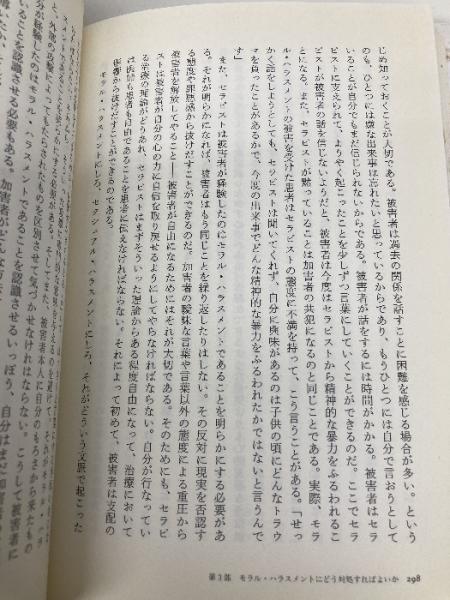 じめ知っておくことが大切である。被害者は過去の関係を話すことに困難を感じる場合が多い。という
のも、ひとつには嫌な出来事は忘れたいと思っているからであり、もうひとつには自分で言おうとして
いることが自分でもまだ信じられないからである。被害者が話をするには時間がかかる。被害者はセラ
ピストに支えられて、ようやく起こったことを少しずつ言葉にしていくことができるのだ。ここでセラ
ピストが被害者の話を信じないようだと、被害者は今度はセラピストから精神的な暴力をふるわれるこ
とになる。また、セラピストが黙っていることは加害者の共犯になるのと同じことである。実際、モラ
ル・ハラスメントの被害を受けた患者はセラピストの態度に不満を持って、こう言うことがある。「せっ
かく話をしようとしても、セラピストは聞いてくれず、自分に興味があるのは子供の頃にどんなトラウ
マを負ったことがあるかで、今度の出来事でどんな精神的な暴力をふるわれたかではないと言うんで
す」
また、セラピストは被害者が経験したのはモラル・ハラスメントであることを明らかにする必要があ
る。それが明らかになれば、被害者はもう同じことを繰り返したりはしない。その反対に現実を否認す
る態度や罪悪感から抜けだすことができるのだ。加害者の曖昧な言葉や言葉以外の態度による重圧から
被害者を解放してやること――被害者が自由になるためにはそれが大切である。そのためにも、セラピ
ストは被害者が自分の心の力に自信を取り戻せるようにしてやらなければならない。自分が行なってい
る治療の理論がどうあれ、セラピストはまずそういった理論からある程度自由になって、治療において
は医師も患者も自由であることを患者に伝えなければならない。それによって初めて、被害者は支配の
影響から抜けだすことができるのである。
モラル・ハラスメントにしろ、セクシュアル・ハラスメントにしろ、それがどういう文脈で起こった
第3部 モラル・ハラスメントにどう対処すればよいか 298
と、外部の攻撃によってもたらされたものを区別させて気づかせなければならない。こうして被害者に
自分が経験したのはモラル・ハラスメントであることを認識させるいっぽう、自分はまだ加害者の
いることを認識させる必要もある。加害者が